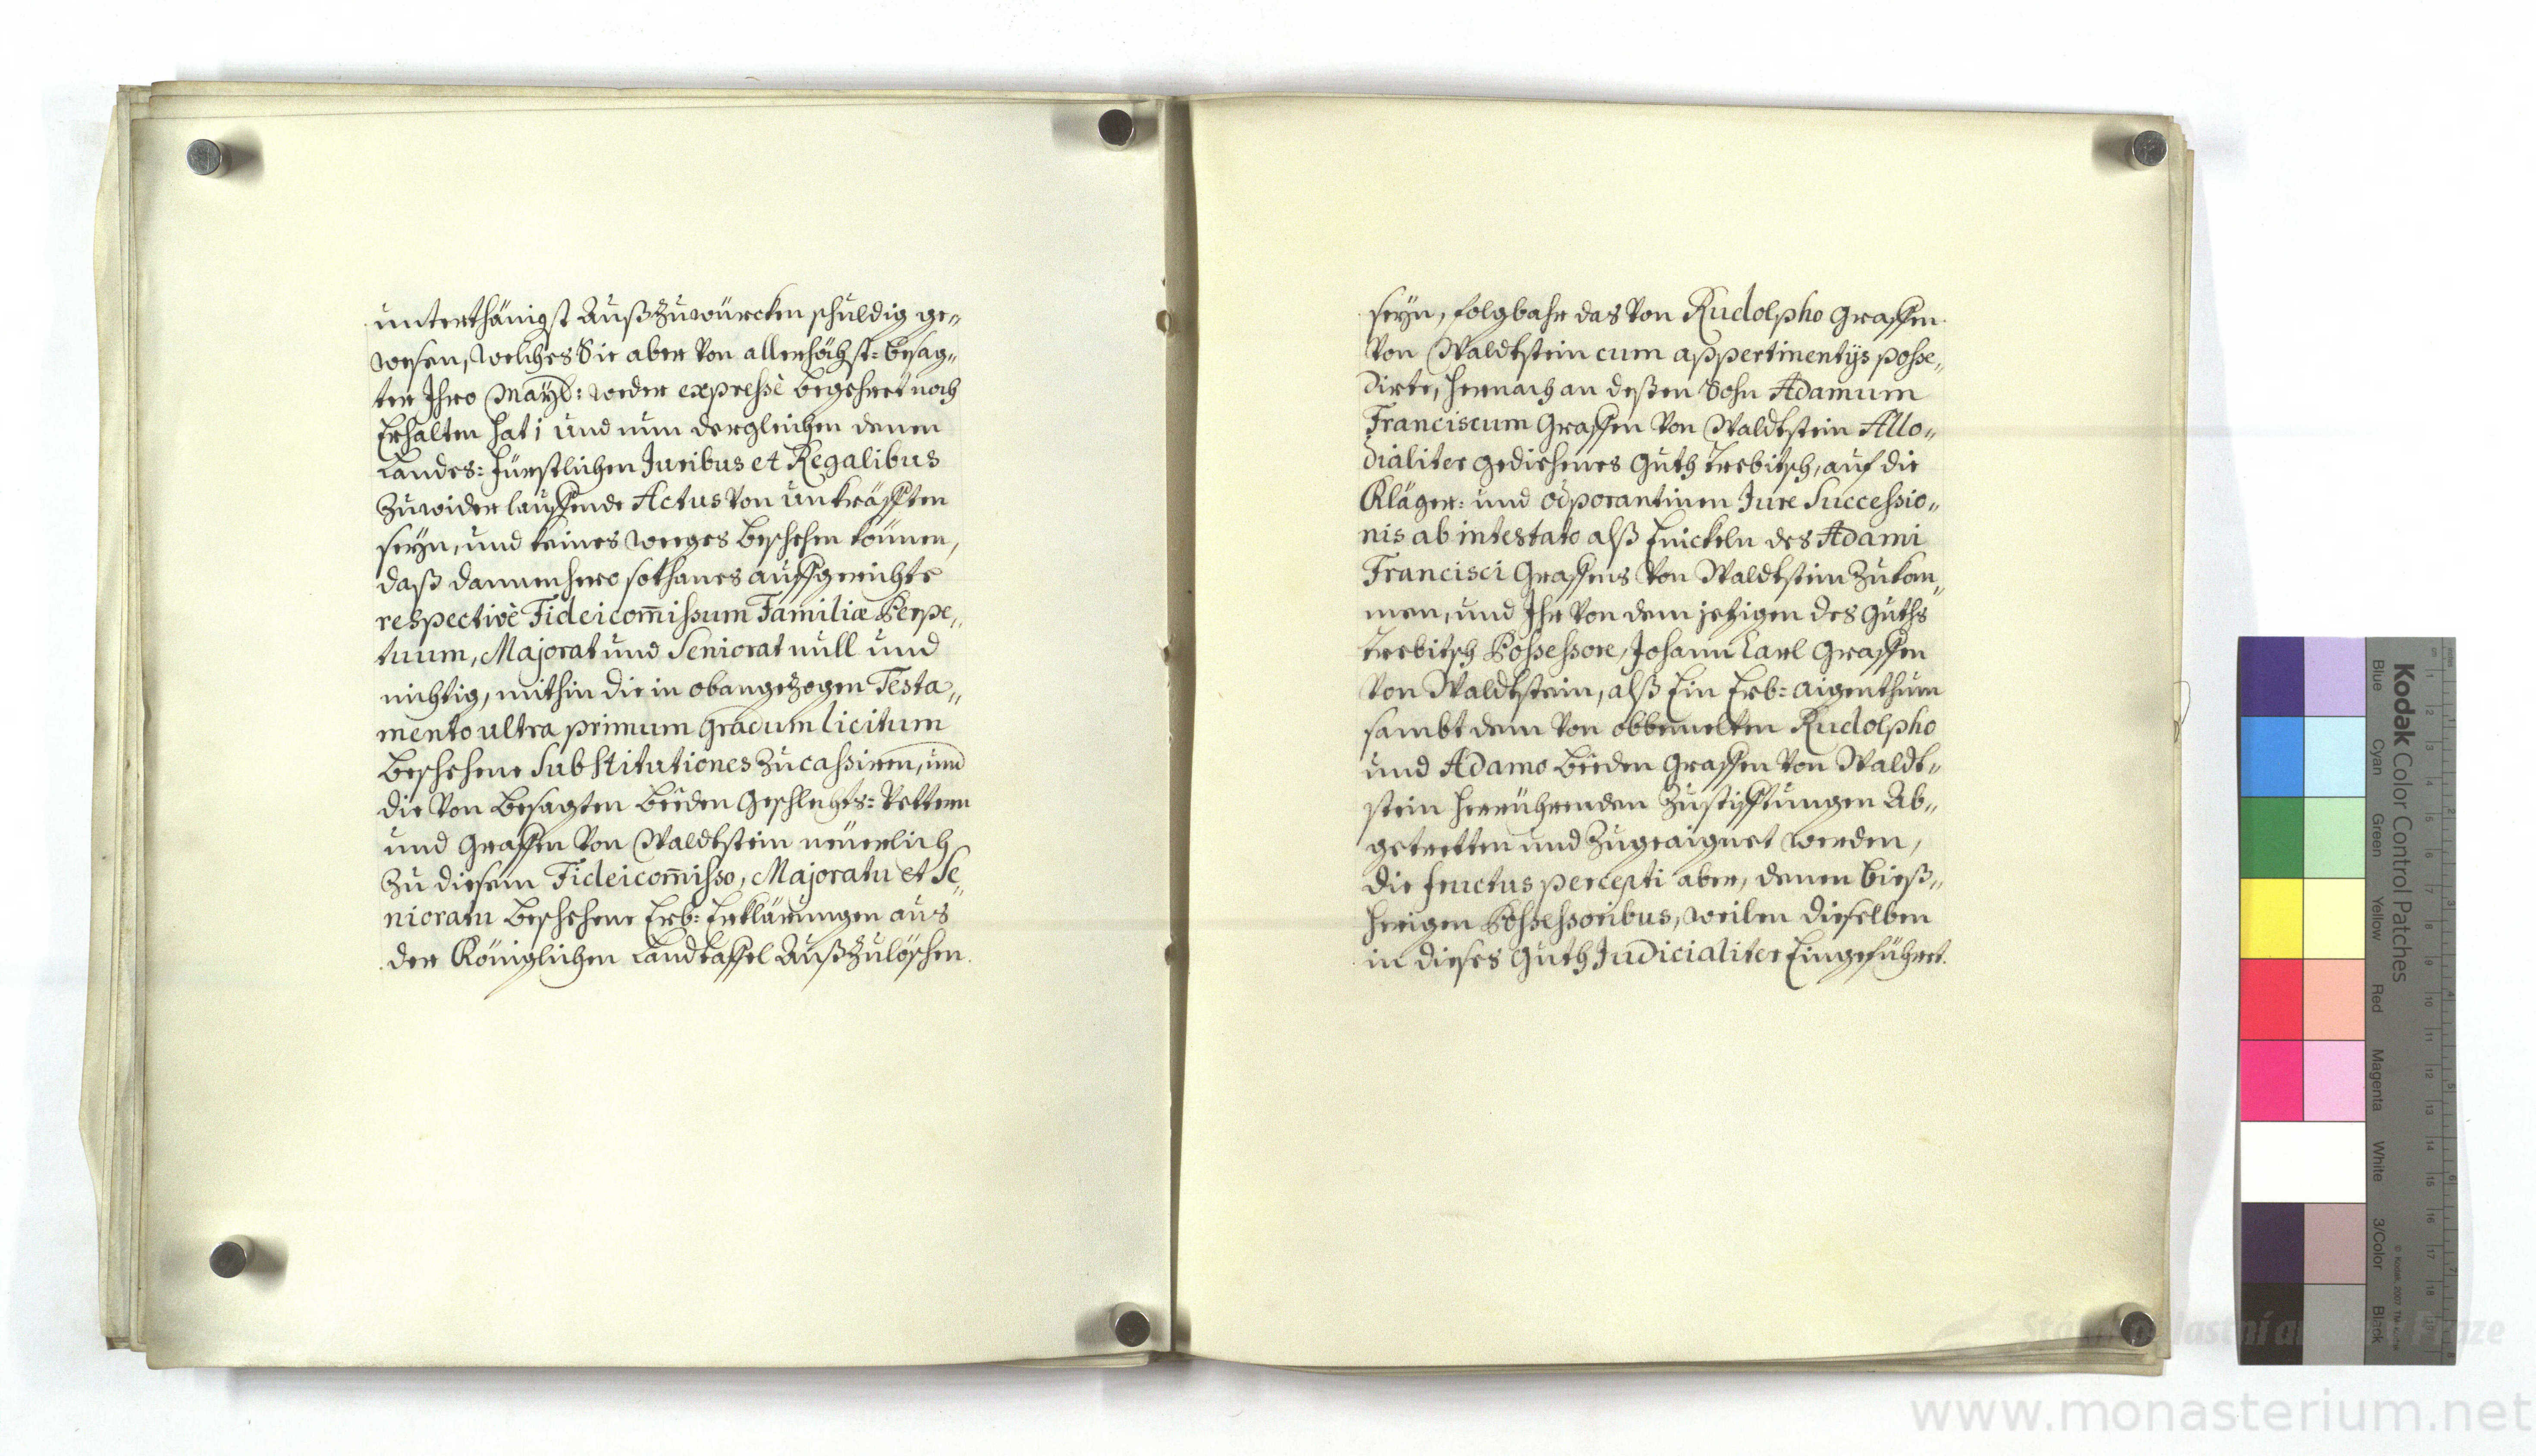 unterthänigst Außzuwürcken schuldig ge„
wesen, welches Sie aber von allerhöchst=besag„
ter Ihro Mayt: weder expressè begehret noch
Erhalten hat; und nun dergleichen denen
Landes=Fürstlichen Juribus et Regalibus
Zuwider lauffende Actus von unkräfften
seyn, und keines weeges beschehen können,
daß dannenhero sothanes auffgerichte
respectivè Fideicom̃issum Familiæ Perpe„
tuum, Majorat und Seniorat null und
nichtig, mithin die in obangezogen Testa„
mento ultra primum gradum licitum
beschehene Substitutiones Zu cassiren, und
die von besagten beeden Geschlechts=Vettern
und Graffen von Waldtstein neüerlich
Zu diesem Fideicom̃isso, Majoratu et Se„
nioratu beschehene Erb=Erklärungen aus
der Königlichen Landtaffel Außzulöschen
seyn, folgbahr das von Rudolpho Graffen
von Waldtstein cum appertinentijs posse„
dirte, hernach an deßen Sohn Adamum
Franciscum Graffen von Waldtstein Allo„
dialiter gediehenes Guth Trebitsch, auf die
Kläger= und odporantinen Jure Successio„
nis ab intestato alß Enickeln des Adami
Francisci Graffens von Waldtstein Zukom„
men, und Ihr von dem jetzigen des Guths
Trebitsch Possessore, Johann Carl Graffen
von Waldtstein, alß Ein Erb=aigenthum
sambt dem von obbemelten Rudolpho
und Adamo beeden Graffen von Waldt„
stein herrührenden Zustifftungen Ab„
getretten und Zugeaignet werden,
die fructus percepti aber, denen bieß„
herigen Possessoribus, weilen dieselben
in dieses Guth Judicialiter Eingeführet
Kodak Color Control Patches
Blue
Cyan
Green
Yellow
Red
Magenta
White
3/Color
Black
www.monasterium.net